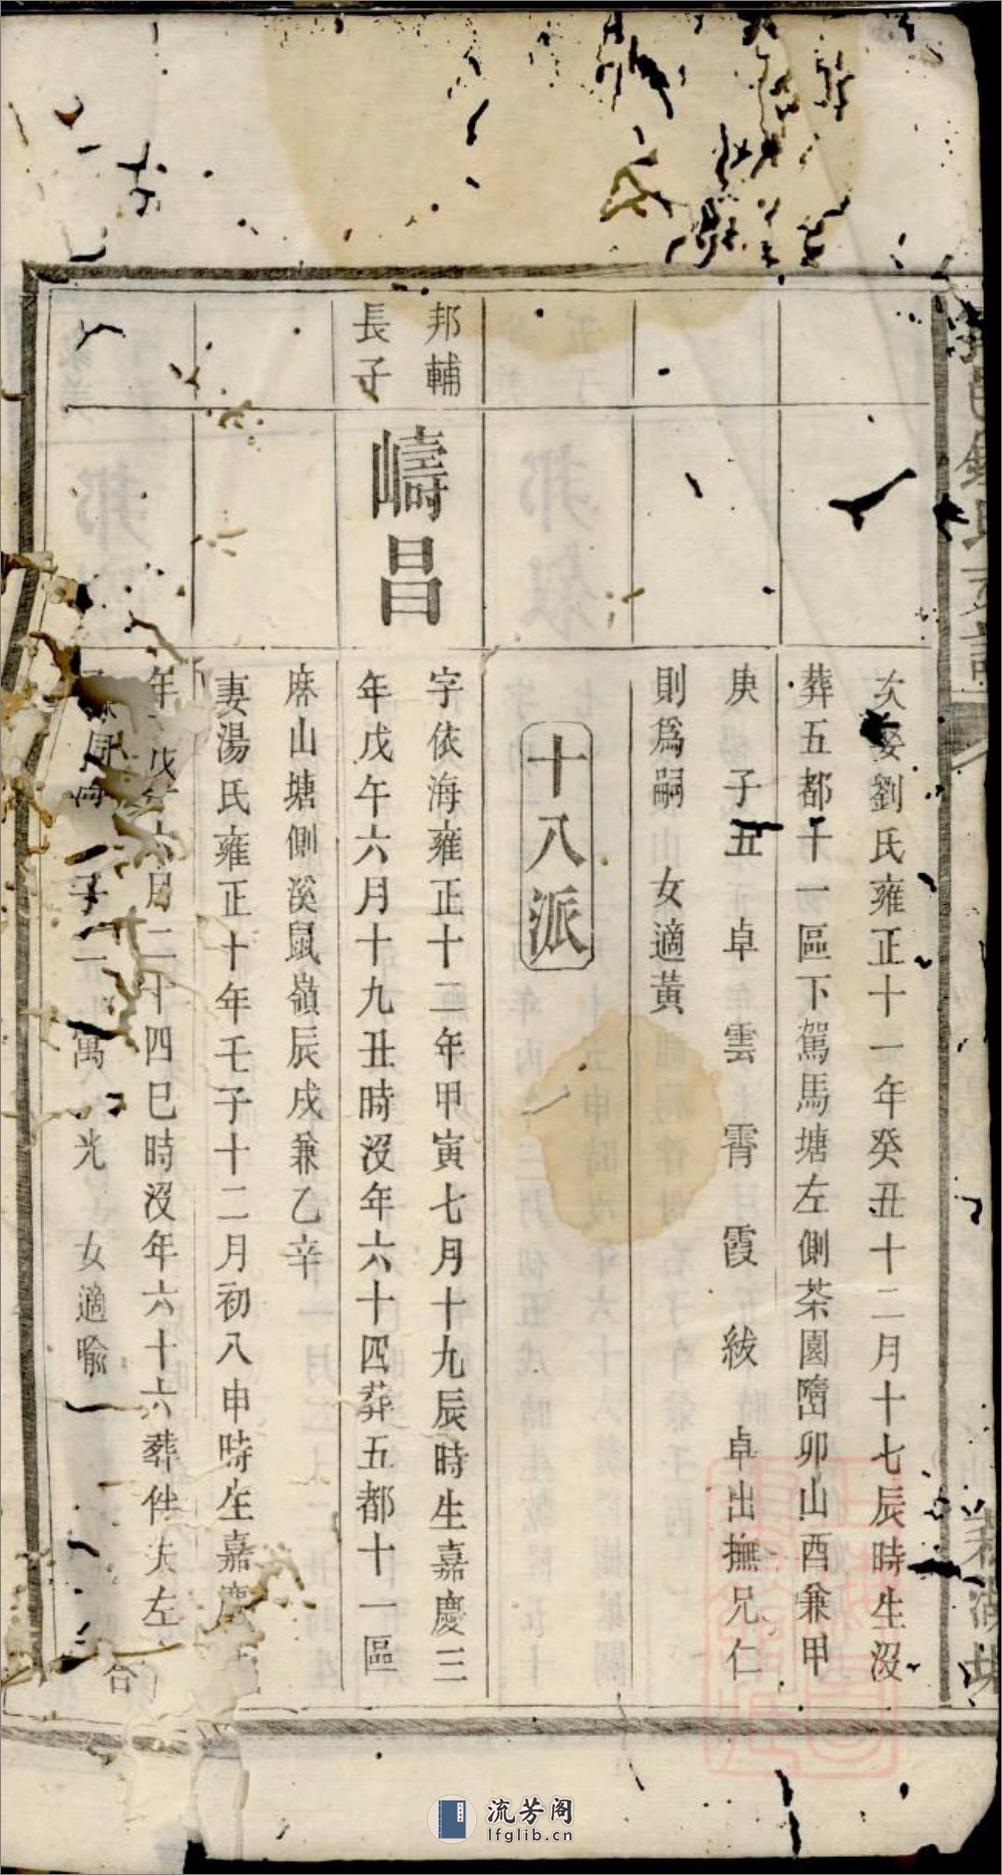 次娶劉氏雍正十一年癸丑十二月十七辰時生沒
葬五都十一區下駕馬塘左側茶園墻卯山酉兼甲
庚　子五　卓　雲　霄　霞　紱　卓出撫兄仁
則為嗣　女適黃
十八派
邦輔
長子
嶹昌
字依海雍正十二年甲寅七月十九辰時生嘉慶三
年戊午六月十九丑時沒年六十四葬五都十一區
麻山塘側溪鼠嶺辰戌兼乙辛
妻湯氏雍正十年壬子十二月初八申時生嘉慶
年戊　六月二十四巳時沒年六十六葬件夫左
子二　寓　光　女適喻
合
流芳阁
lfglib.cn